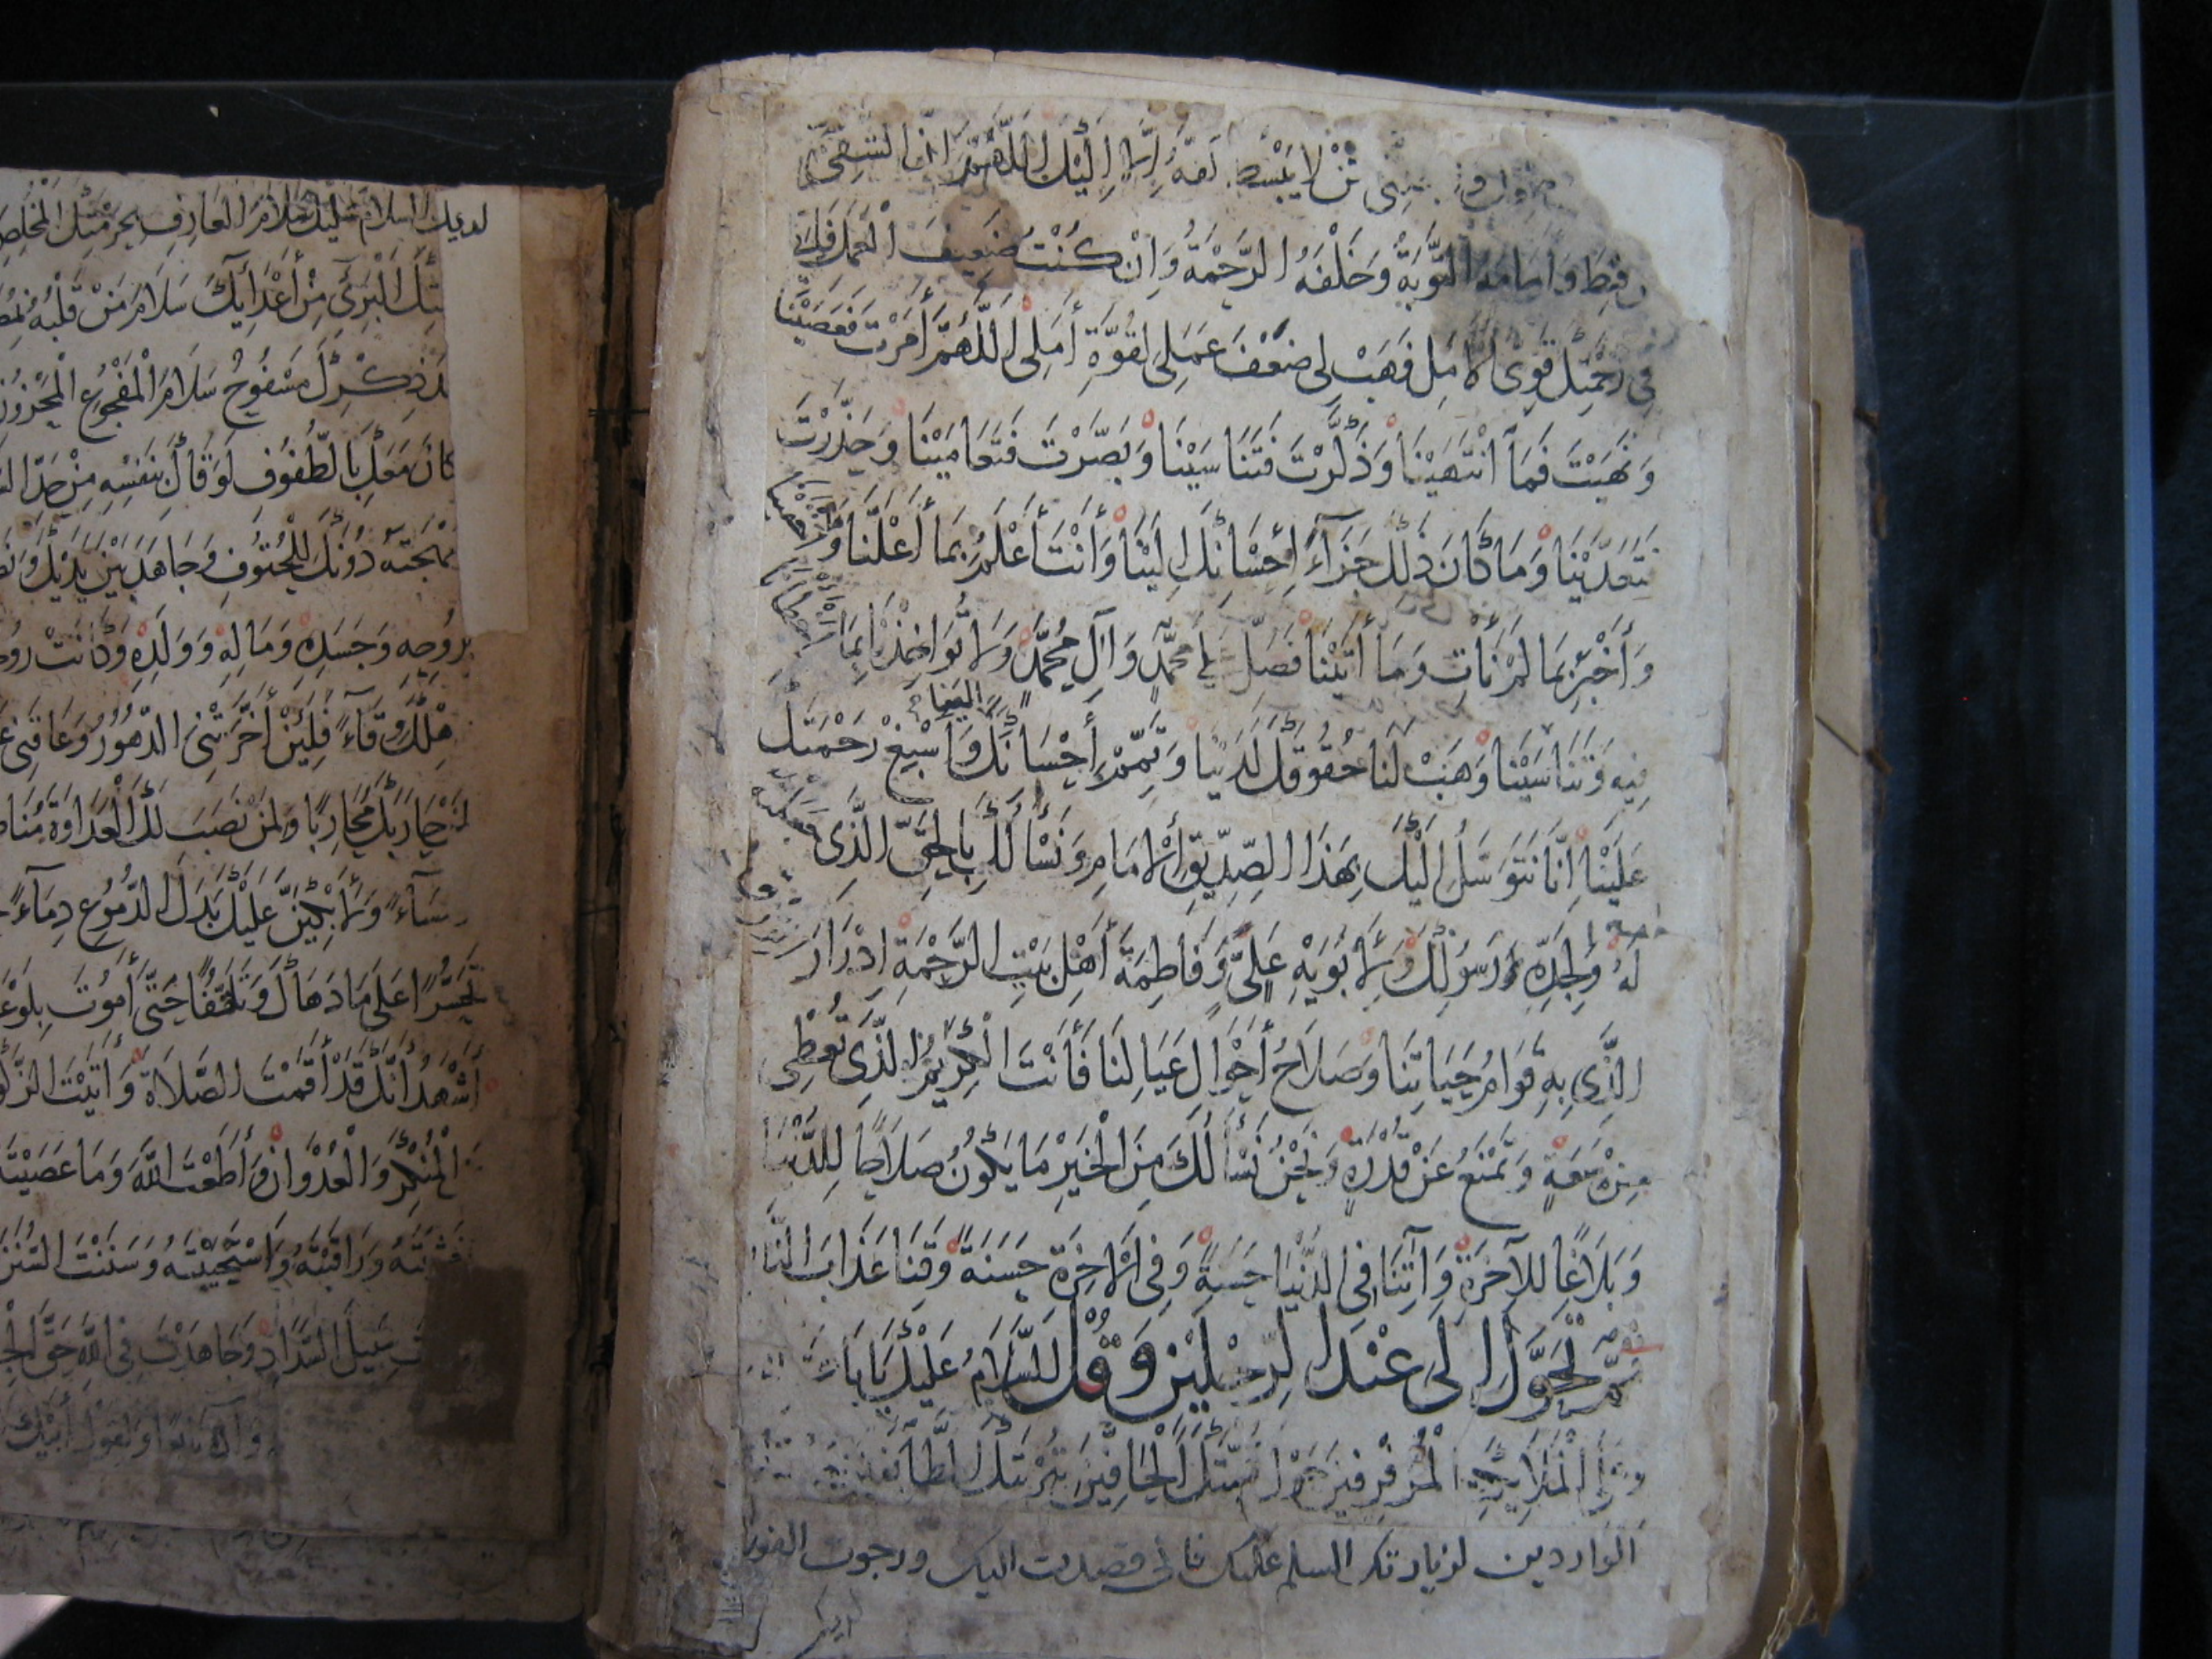 لا يبسط كفه إلا إليك اللهم إن الشقي
قنط وأمامه التوبة وخلفه الرحمة وإن كنت ضعيف العمل فإني
في رحمتك قوي الأمل فهب لي ضعف عملي لقوة أملي اللهم أمرت فعصينا
ونهيت فما انتهينا وذكرت فتناسينا وبصرت فتعامينا وحذرت
فتعدينا وما كان ذلك جزاء إحسانك إلينا وأنت أعلم بما أعلنا وأخفينا
وأخبر بما لم نأت وما أتينا فصل على محمد وآل محمد ولا تؤاخذنا بما أخطأنا
فيه وتناسينا وهب لنا حقوقك لدينا وتمم إحسانك إلينا وأسبغ رحمتك
علينا إنا نتوسل إليك بهذا الصديق الإمام ونسألك بالحق الذي جعلته
له ولجده رسولك ولأبويه علي وفاطمة أهل بيت الرحمة إدرار
الذي به قوام حياتنا وصلاح أحوال عيالنا فأنت الكريم الذي تعطي
من سعة وتمنع عن قدرة ونحن نسألك من الخير ما يكون صلاحا للدنيا
وبلاغا للآخرة وآتنا في الدنيا حسنة وفي الآخرة حسنة وقنا عذاب النار
ثم تحول إلى عند الرجلين وقل السلام عليك يا أبا
وعلى الملائكة المرفرفين حول قبتك الحافين بتربتك الطائفين
الواردين لزيارتك السلم عليك فاني قصدت اليك ورجوت الفوز
لديك
لديك السلام عليك سلام العارف بحرمتك المخلص
البريء من أعدائك سلام من قلبه
ذكرك مسفوح سلام المفجوع المحزون
كان معك بالطفوف لوقاك بنفسه من حد
دونك للحتوف وجاهد بين يديك
بروحه وجسده وماله وولده وكانت
وقاء فلئن أخرتني الدهور وعاقني
لمن حاربك محاربا ولمن نصب لك العداوة
ومساء ولأبكين عليك بدل الدموع دماء
تحسرا على ما دهاك وتلهفا حتى أموت بلوعة
أشهد أنك قد أقمت الصلاة وآتيت الزكوة
المنكر والعدوان وأطعت الله وما عصيته
وراقبته واستجبته وسننت السنن
سبيل السداد وجاهدت في الله حق